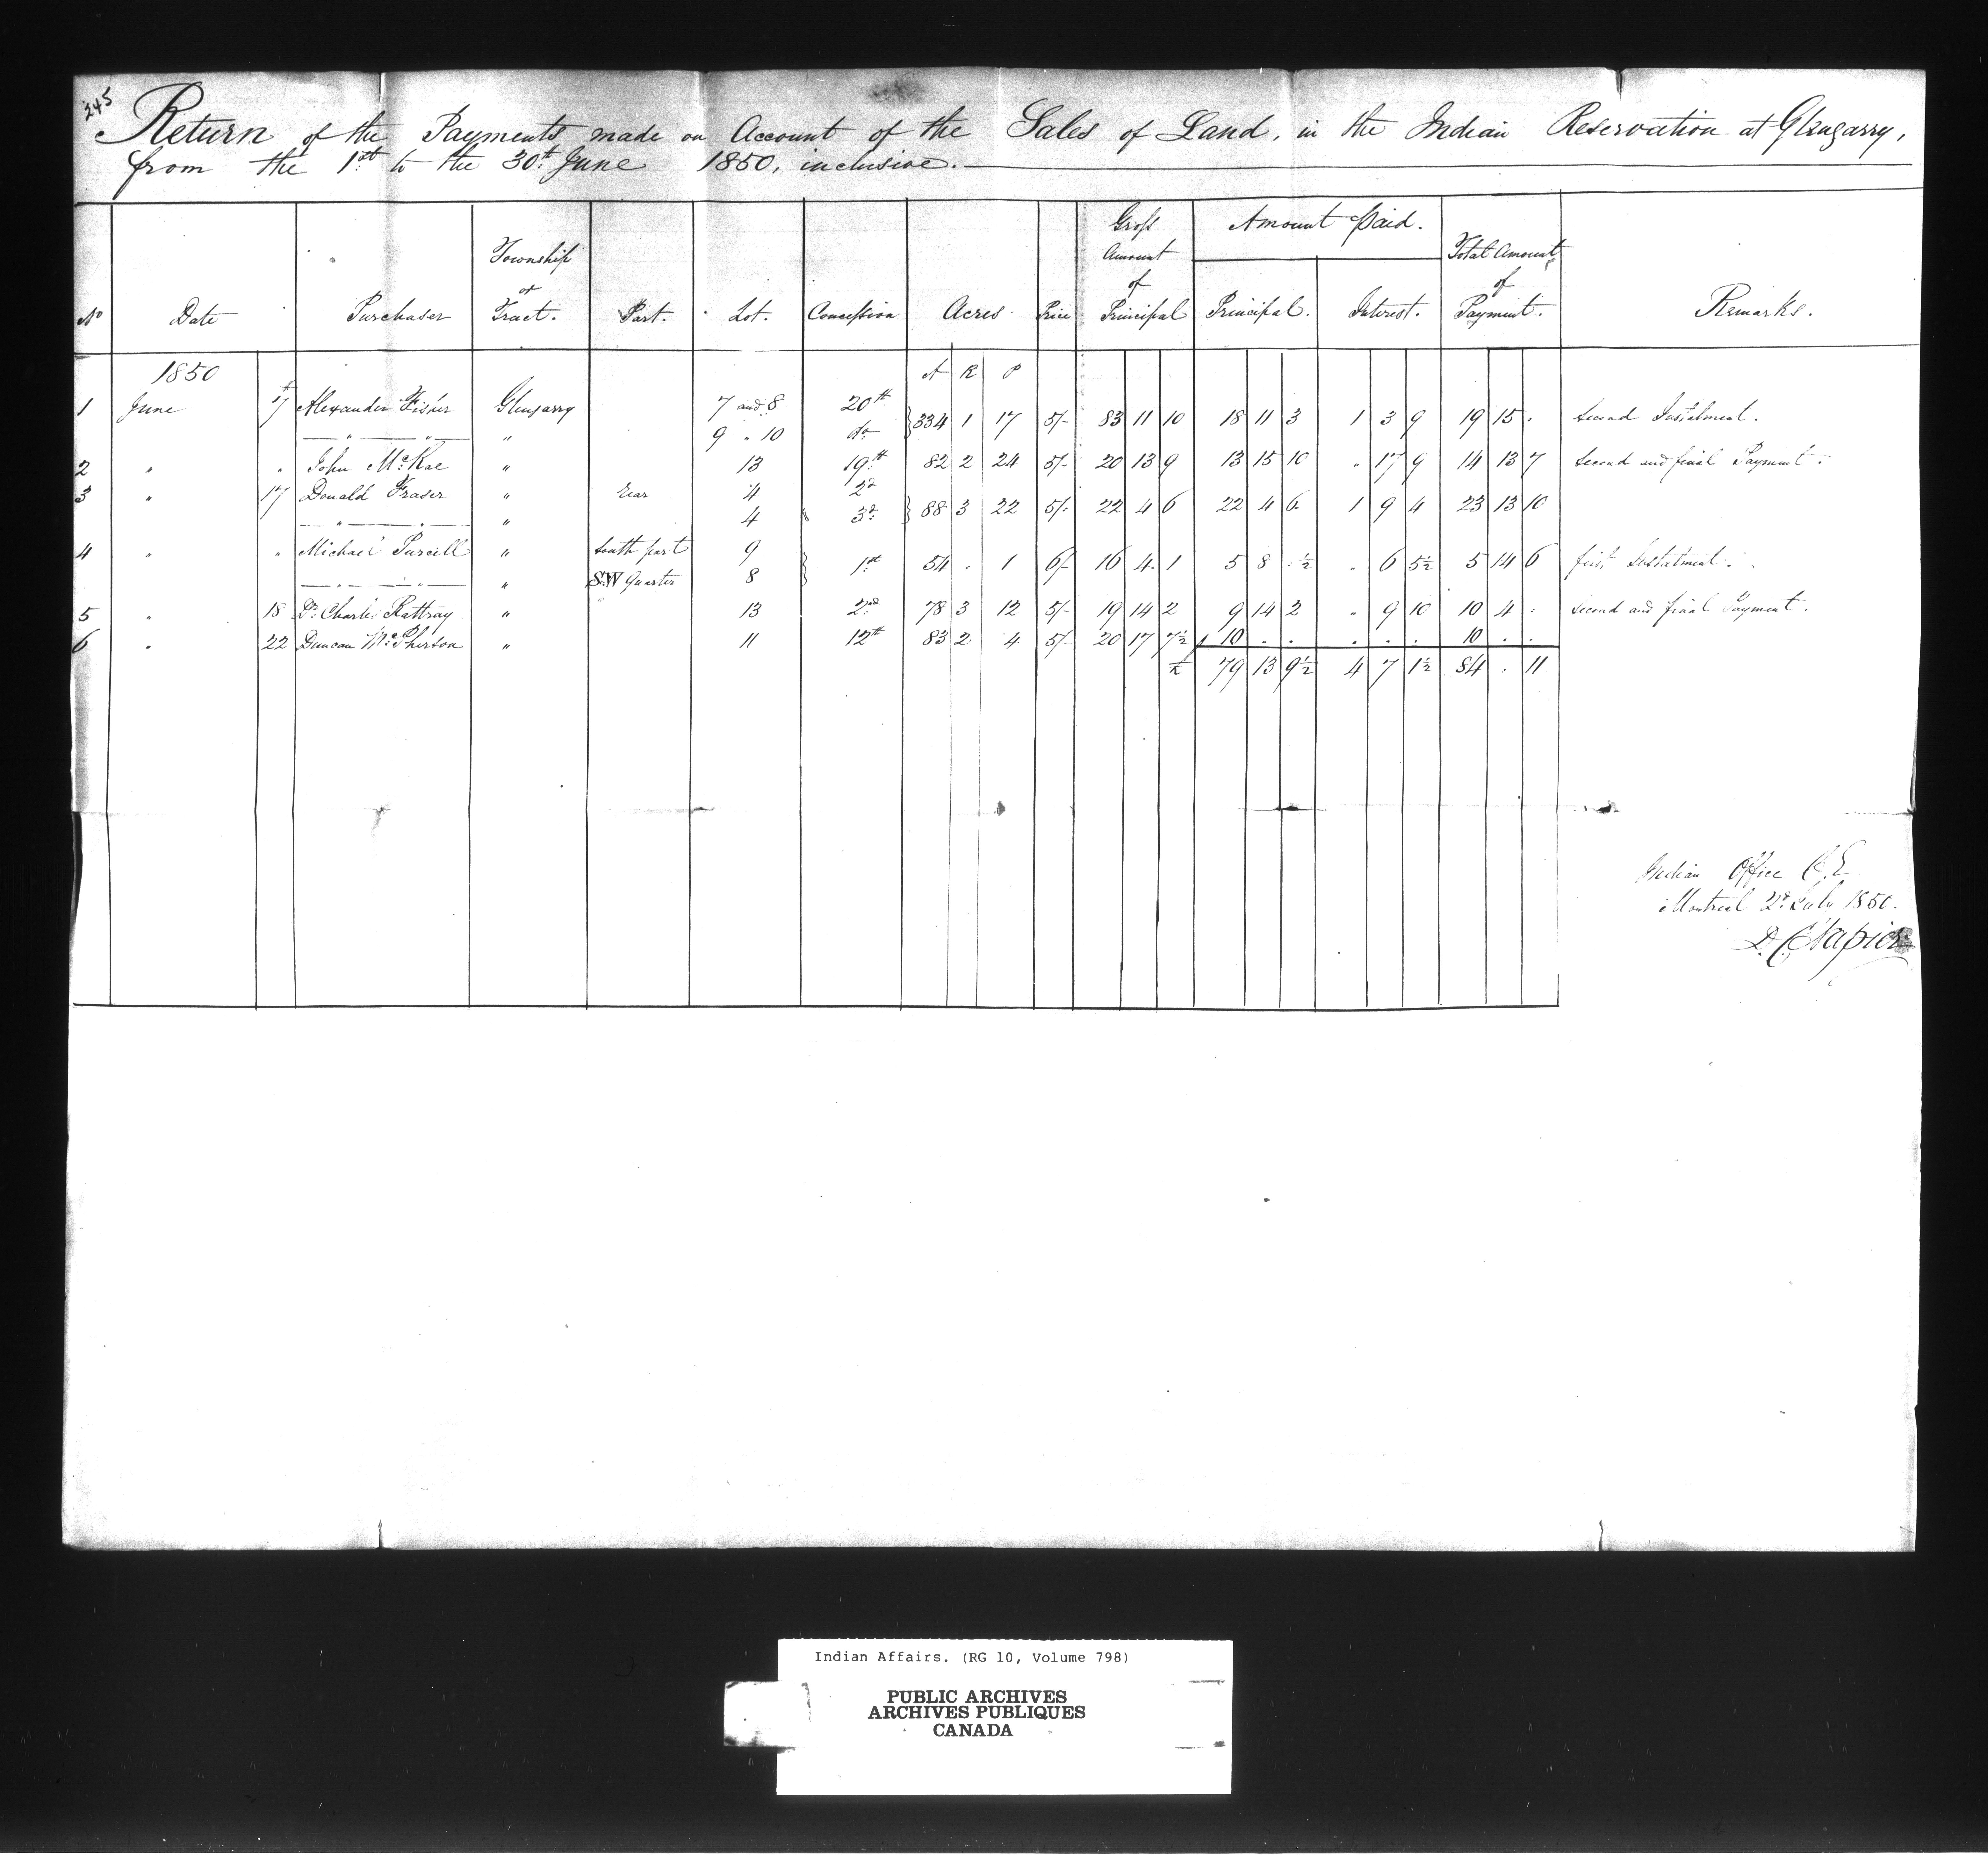 245
Return of the Payments made on Account of the Sales of Land, in the Indian Reservation at Glengarry,
from the 1st to the 30th June 1850, inclusive.
No Date Purchaser Township or Tract. Part. Lot. Concession Acres Price Gross Amount of Principal Amount Paid. Principal. Interest. Total Amount of Payment. Remarks.
1850 A R P
1 June 7th Alexander Fisher Glengarry 7 and 8 20th } 334 1 17 5/- 83 11 10 18 11 3 1 3 9 19 15 . Second Instalment.
— " — " — " 9 " 10 do
2 " " John McRae " 13 19th 82 2 24 5/- 20 13 9 13 15 10 " 17 9 14 13 7 Second and final Payment.
3 " 17 Donald Fraser " rear 4 2d } 88 3 22 5/- 22 4 6 22 4 6 1 9 4 23 13 10
— " — " — " 4 3d
4 " " Michael Purcell " South part 9 } 1st 54 . 1 6/- 16 4 1 5 8 . ½ . 6 5½ 5 14 6 first Instalment.
— " — " — " S.W Quarter 8
5 " 18 Dr Charles Rattray " 13 2nd 78 3 12 5/- 19 14 2 9 14 2 " 9 10 10 4 . Second and final Payment.
6 " 22 Duncan McPherson " 11 12th 83 2 4 5/- 20 17 7½ 10 . . . . . 10 . .
79 13 9½ 4 7 1½ 84 . 11
Indian Office C.E
Montreal 2d July 1850.
D. C. Napier
Indian Affairs. (RG 10, Volume 798)
PUBLIC ARCHIVES
ARCHIVES PUBLIQUES
CANADA